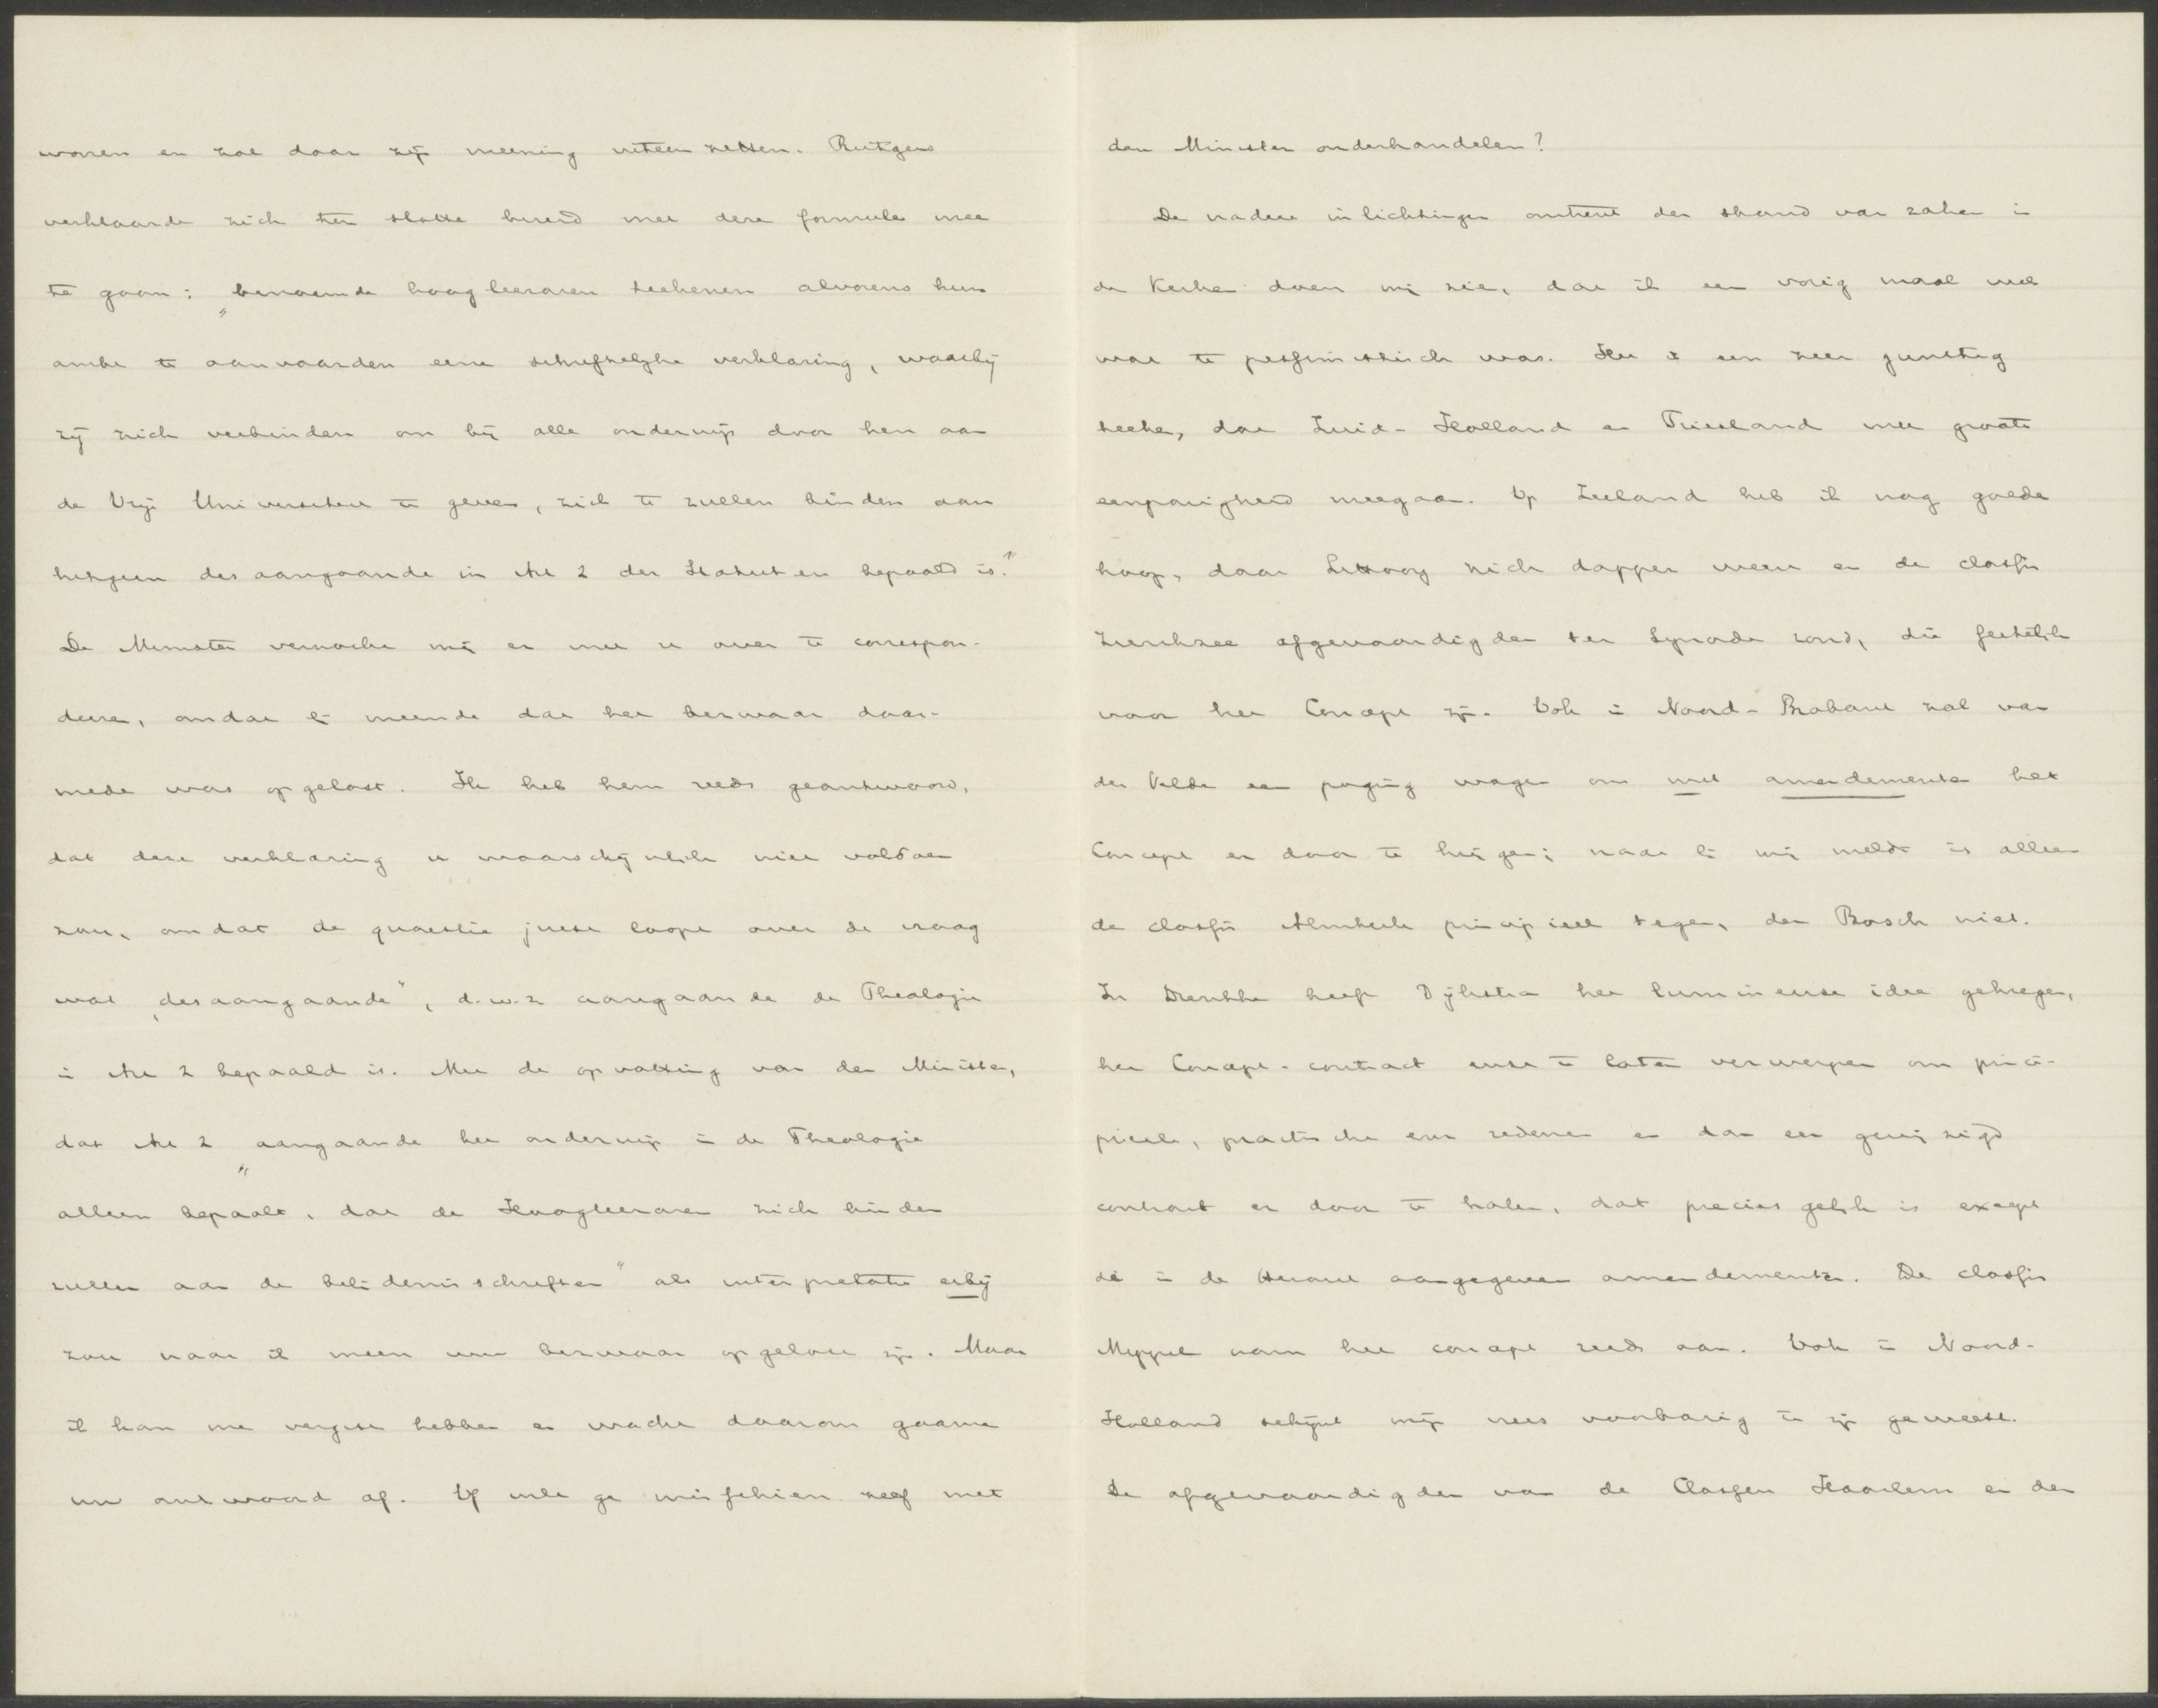 wonen en zal daar zijn meening uiteen zetten. Rutgers
verklaarde zich ten slotte bereid met deze formule mee
te gaan: „benoemde hoogleeraren teekenen alvorens hun
ambt te aanvaarden eene schriftelijke verklaring, waarbij
zij zich verbinden om bij alle onderwijs door hen aan
de Vrije Universiteit te geven, zich te zullen binden aan
hetgeen desaangaande in Art 2 der Statuten bepaald is."
De Minister verzocht mij er met u over te correspon-
deeren, omdat hij meende dat het bezwaar daar-
mede was opgelost. Ik heb hem reeds geantwoord,
dat deze verklaring u waarschijnlijk niet voldoen
zou, omdat de quaestie juist loopt over de vraag
wat „desaangaande", d.w.z aangaande de Theologie
in Art 2 bepaald is. Met de opvatting van den Minister,
dat Art 2 „aangaande het onderwijs in de Theologie
alleen bepaalt, dat de Hoogleeraren zich binden
zullen aan de belijdenisschriften" als interpretatie erbij
zou naar ik meen uw bezwaar opgelost zijn. Maar
ik kan me vergist hebben en wacht daarom gaarne
uw antwoord af. Of wilt ge misschien zelf met
den Minister onderhandelen?
De nadere inlichtingen omtrent den stand van zaken in
de Kerken doen mij zien, dat ik een vorig maal wel
wat te pessimistisch was. Het is een zeer gunstig
teeken, dat Zuid-Holland en Friesland met groote
eenparigheid meegaan. Op Zeeland heb ik nog goede
hoop, daar Littooy zich dapper weert en de classis
Zierikzee afgevaardigden ter Synode zond, die feitelijk
voor het Concept zijn. Ook in Noord-Brabant zal van
der Velde een poging wagen om met amendementen het
Concept er door te krijgen; naar hij mij meldt is alleen
de classis Almkerk principieel tegen, den Bosch niet.
In Drenthe heeft Dijkstra het lumineuse idee gekregen,
het Concept-contract eerst te laten verwerpen om princi-
pieele, practische enz redenen en dan een gewijzigd
contract er door te halen, dat precies gelijk is except
de in de Heraut aangegeven amendementen. De classis
Meppel nam het concept reeds aan. Ook in Noord-
Holland schijnt mijn vrees voorbarig te zijn geweest.
De afgevaardigden van de Classen Haarlem en den